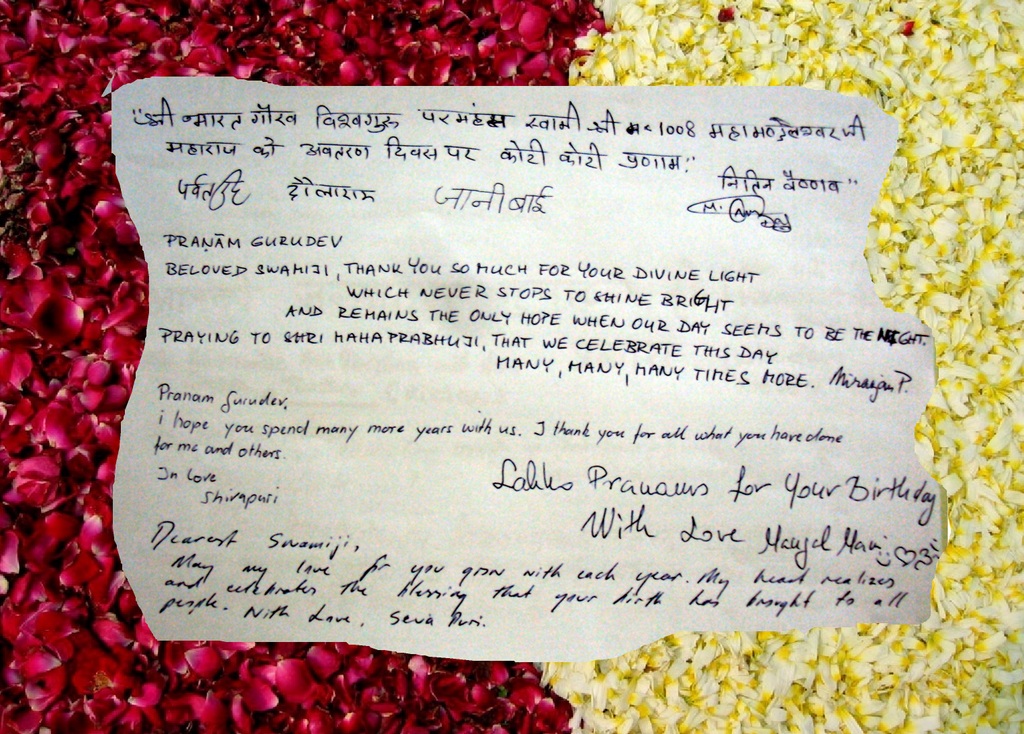 "श्री भारत गौरव विश्वगुरू परमहंस स्वामी श्री म॰ 1008 महामण्डलेश्वर जी
महाराज को अवतरण दिवस पर कोटी कोटी प्रणाम"
नितिन वैष्णव"
पर्वतसिंह दौलाराम जानीबाई
PRAṆĀM GURUDEV
BELOVED SWAMIJI, THANK YOU SO MUCH FOR YOUR DIVINE LIGHT
WHICH NEVER STOPS TO SHINE BRIGHT
AND REMAINS THE ONLY HOPE WHEN OUR DAY SEEMS TO BE THE NIGHT.
PRAYING TO SHRI MAHAPRABHUJI, THAT WE CELEBRATE THIS DAY
MANY, MANY, MANY TIMES MORE. Niranjan P.
Pranam Gurudev,
i hope you spend many more years with us. I thank you for all what you have done
for me and others.
In love
Shivapuri
Lakho Pranams for Your Birthday
With Love Mangal Mani
Dearest Swamiji,
May my love for you grow with each year. My heart realizes
and celebrates the blessing that your birth has brought to all
people. With Love, Seva Puri.